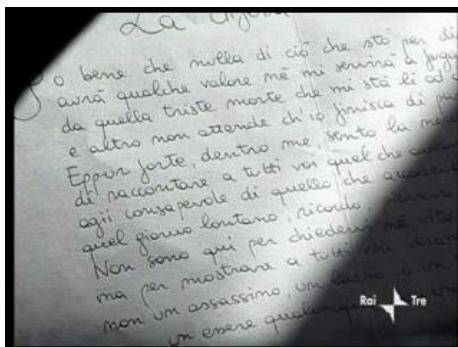 La
o bene che nulla di ciò che stò per di
avrà qualche valore nè mi servirà a fugg
da quella triste morte che mi stà lì ad
e altro non attende ch'io finisca di
Eppur forte, dentro me, sento la
di raccontare a tutti voi quel che
agii consapevole di quello che accadeva
quel giorno lontano, ricordo, pioveva
Non sono qui per chiedervi nè vita
ma per mostrare a tutti che
non un assassino, un ladro o un
un essere qualunque
Rai Tre